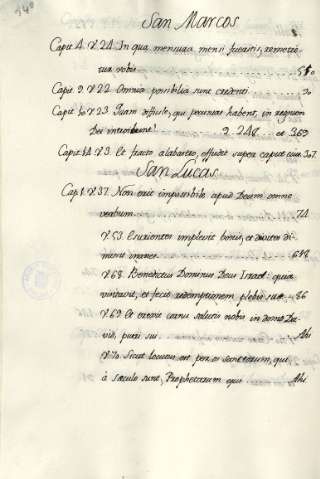 San Marcos
Capit. 4. V. 24. In qua mensura mensi fueritis, remetie-
tur vobis ... 550
Capit. 9. V. 22. Omnia possibilia sunt credenti ... 30
Capit. 10. V. 23. Quam dificile, qui pecunias habent, in regnum
Dei introibunt! 2. 248 .. et 369
Capit. 14. V. 3. Et fracto alabastro, effudit super caput eius 307.
San Lucas
Cap. 1. V. 37. Non erit impossibile apud Deum omne
verbum ... 74
V. 53. Esurientes implevit bonis, et divites di-
misit inanes ...
V. 68. Benedictus Dominus Deus Israel: quia
visitavit, et fecit redemptionem plebis suæ .. 86
V. 69. Et erexit cornu salutis nobis in domo Da-
vid, pueri sui ... Ahi
V. 70. Sicut locutus est per os sanctorum, qui
à sæculo sunt, Prophetarum ejus ... Ahi.